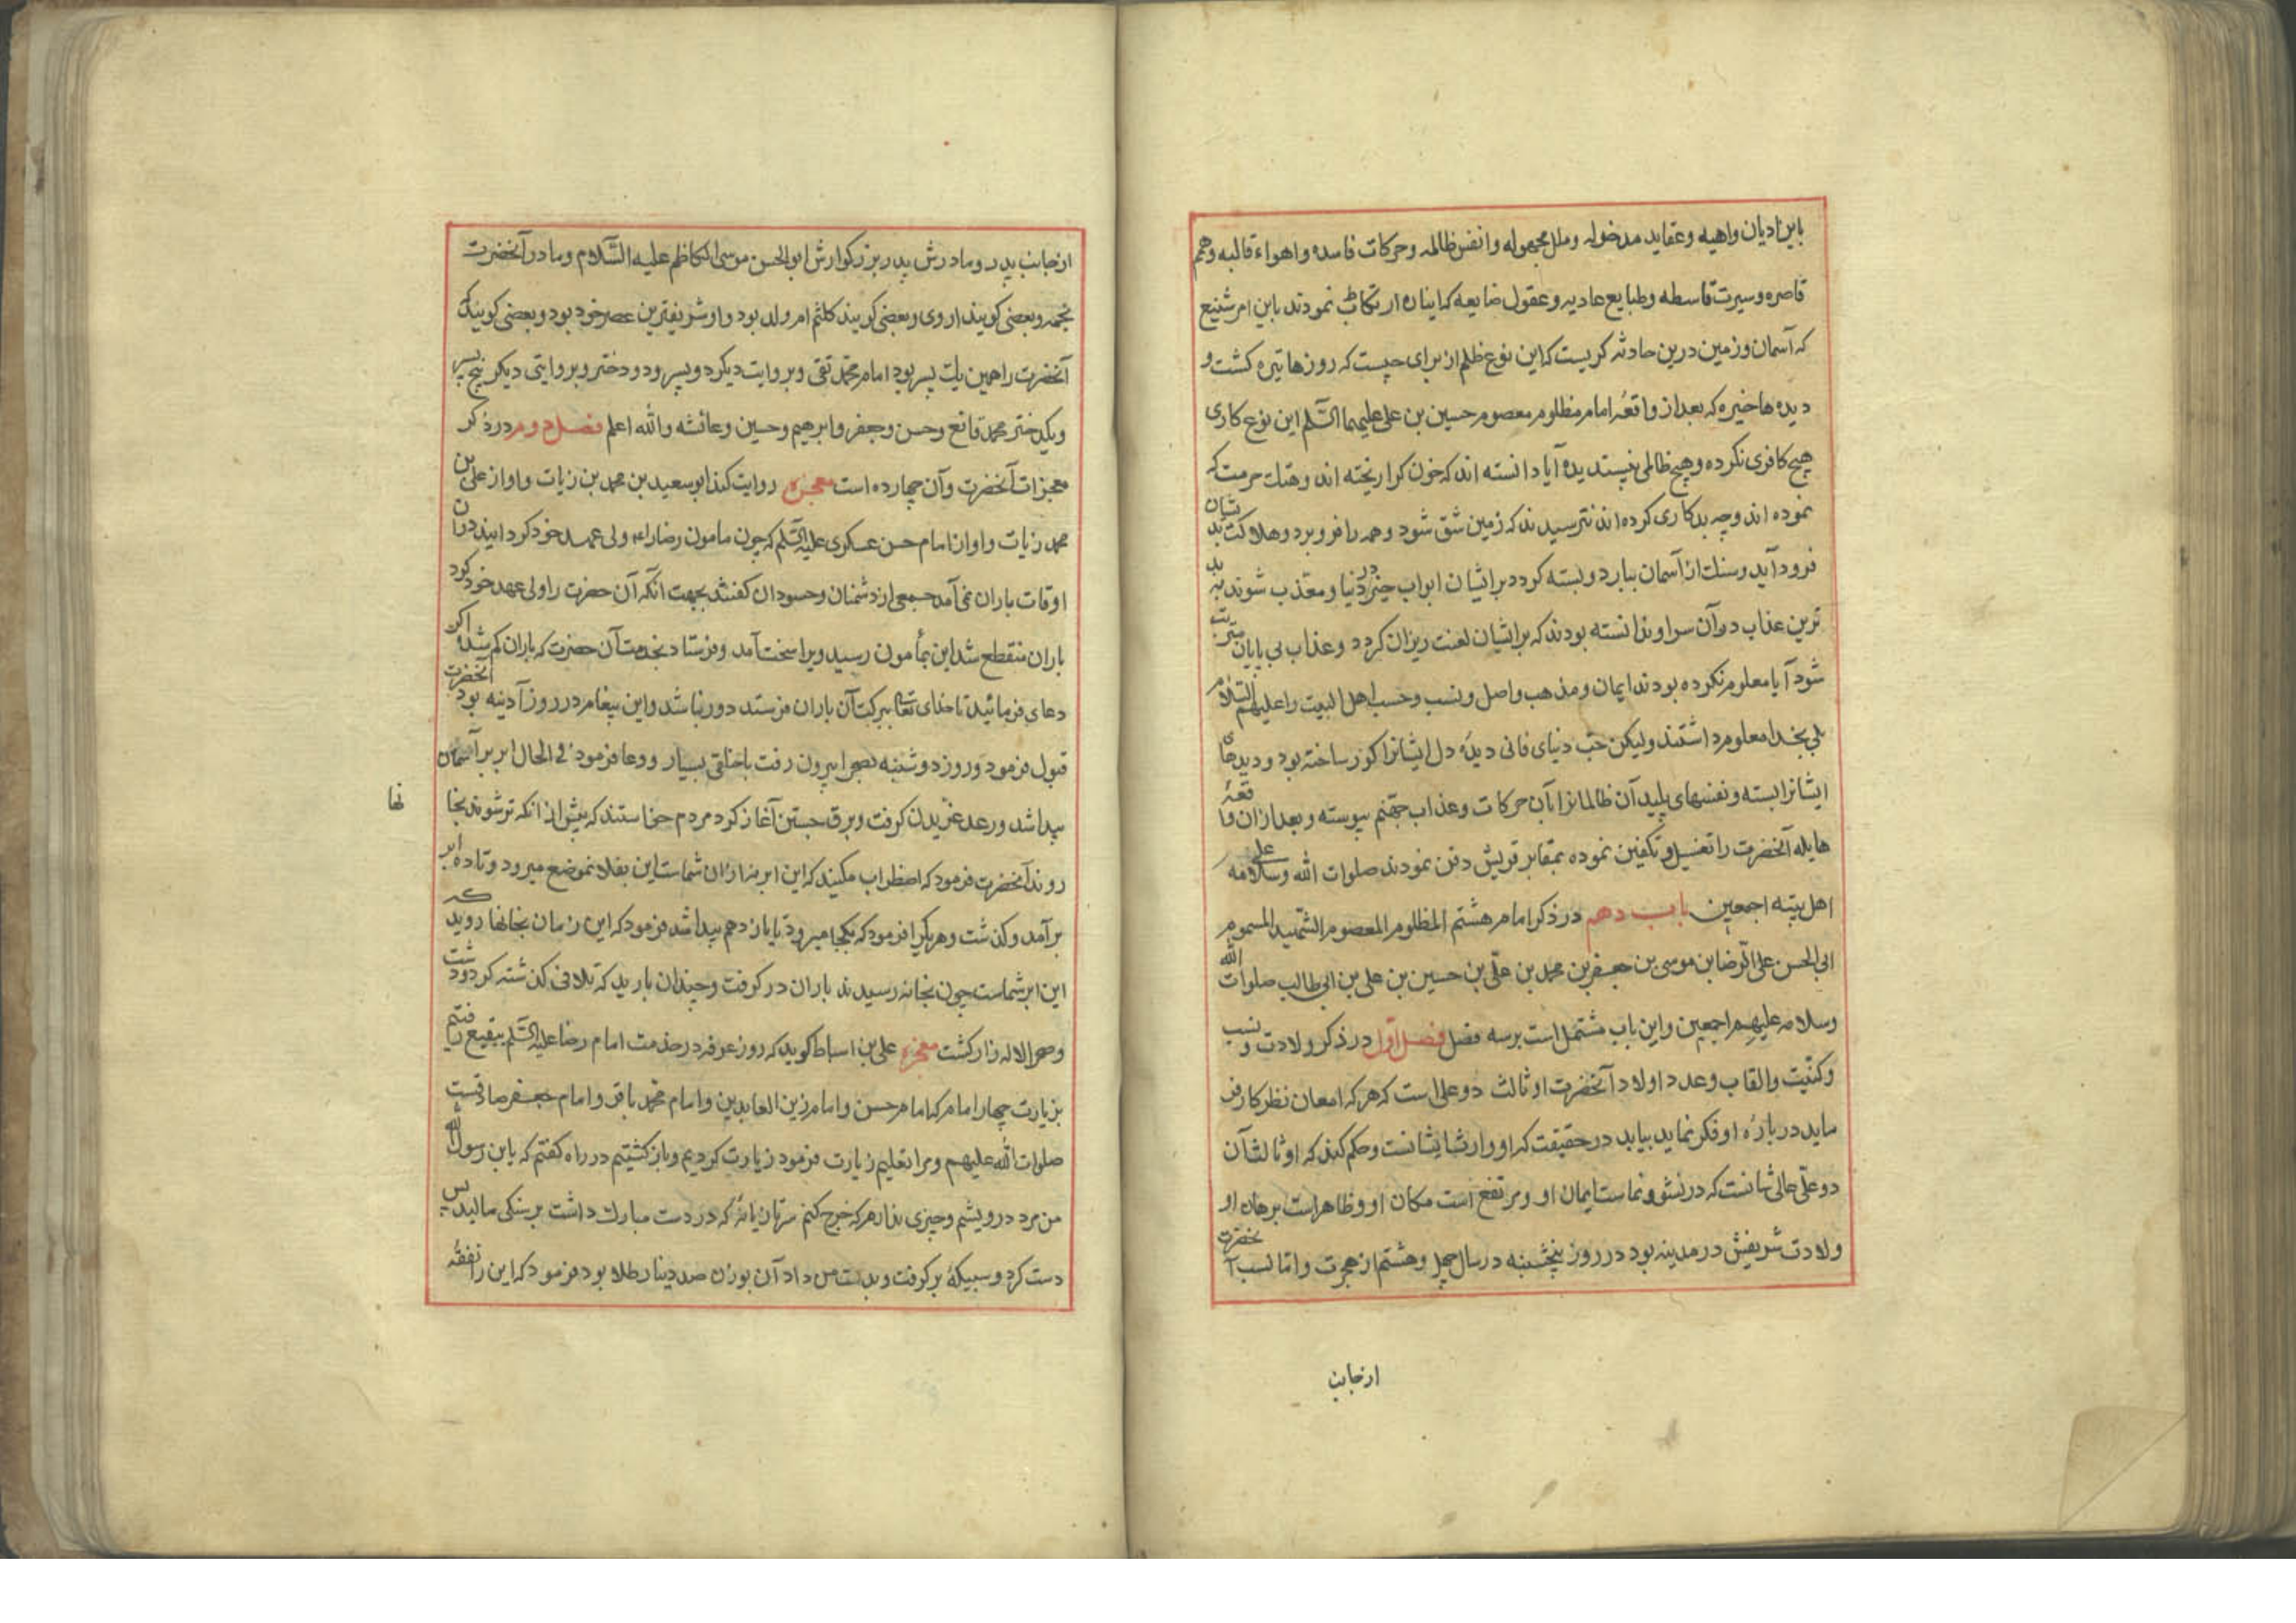 باین ادیان واهیه و عقاید مدخوله و ملل مجهوله و انفس ظالمه و حرکات فاسده و اهواء قالبه و همم
قاصره و سیرت قاسطه و طبایع عادیه و عقول ضایعه که اینان ارتکاب نمودند باین امر شنیع
که آسمان و زمین درین حادثه کریست که این نوع ظلم از برای چیست که روزها تیره کشت و
دیده ها خیره که بعد از واقعهٔ امام مظلوم معصوم حسین بن علی علیهما السّلم این نوع کاری
هیچ کافری نکرده و هیچ ظالمی نپسندیده آیا دانسته اند که خون کرا ریخته اند و هتک حرمت که
نموده اند و چه بدکاری کرده اند نترسیدند که زمین شق شود و همه را فرو برد و هلاکت بدیشان
فرود آید و سنک از آسمان ببارد و بسته کردد بر ایشان ابواب خیر در دنیا و معذب شوند به بد
ترین عذاب در آن سرا و ندانسته بودند که بر ایشان لعنت ریزان کردد و عذاب بی پایان مترتب
شود آیا معلوم نکرده بودند ایمان و مذهب و اصل و نسب و حسب اهل البیت را علیهم السّلام
بلی بخدا معلوم داشتند ولیکن حبّ دنیای فانی دیدهٔ دل ایشانرا کور ساخته بود و دیدهای
ایشانرا بسته و نفسهای پلید آن ظالمانرا بآن حرکات و عذاب جهنّم پیوسته و بعد از ان واقعهٔ
هایله آنحضرت را تغسیل و تکفین نموده بمقابر قریش دفن نمودند صلوات الله و سلامه علی
اهل بیته اجمعین باب دهم در ذکر امام هشتم المظلوم المعصوم الشّهید المسموم
ابی الحسن علی الرّضا بن موسی بن جعفر بن محمد بن علی بن حسین بن علی بن ابی طالب صلوات الله
و سلامه علیهم اجمعین و این باب مشتمل است بر سه فصل فصل اوّل در ذکر ولادت و نسب
و کنّیت و القاب و عدد اولاد آنحضرت او ثالث دو علی است که هر که امعان نظر کار فر
ماید در بارهٔ او فکر نماید بیابد در حقیقت که او وارث ایشانست و حکم کند که او ثالث آن
دو علّی عالی شانست که در نشو و نماست ایمان او و مرتفع است مکان او و ظاهر است برهان او
ولادت شریفش در مدینه بود در روز پنجشنبه در سال چهل و هشتم از هجرت و امّا نسب آنحضرت
از جانب
از جانب پدر و مادرش پدر بزرکوارش ابو الحسن موسی الکاظم علیه السّلام و مادر آنحضرت
نجمه و بعضی کویند اروی و بعضی کویند کلثم ام ولد بود و او شریفترین عصر خود بود و بعضی کویند که
آنحضرت را همین یک پسر بود امام محمّد تقی و بروایت دیکر دو پسر و دو دختر و بروایتی دیکر پنج پسر
و یکدختر محمد قانع و حسن و جعفر و ابرهیم و حسین و عائشه و الله اعلم فصل دوم در ذکر
معجزات آنحضرت و آن چهارده است معجزه روایت کند ابو سعید بن محمد بن زیات و او از علی بن
محمد زیات و او از امام حسن عسکری علیه السّلم که چون مامون رضا را ولی عهد خود کردانید در آن
اوقات باران نمی آمد جمعی از دشمنان و حسودان کفتند بجهت انکه آن حضرت را ولی عهد خود کرد
باران منقطع شد این بمأمون رسید ویرا سخت آمد و فرستاد بخدمت آن حضرت که باران کم شده اکر
دعای فرمائید تا خدای تعالی ببرکت آن باران فرستد دور نباشد و این پیغام در روز آدینه بود آنحضرت
قبول فرمود و روز دوشنبه بصحرا بیرون رفت با خلقی بسیار و دعا فرمود فی الحال ابر بر آسمان
پیدا شد و رعد غریدن کرفت و برق جستن آغاز کرد مردم خواستند که پیش از انکه تر شوند بخا
نها
روند آنحضرت فرمود که اضطراب مکنید که این ابر نه از ان شماست این بفلان موضع میرود و تا ده ابر
برآمد و کذشت و هر یکرا فرمود که بکجا میرود تا یازدهم پیدا شد فرمود که این زمان بخانها روید که
این ابر شماست چون بخانه رسیدند باران در کرفت و چندان بارید که تلافی کذشته کرد و دشت
و صحرا لاله زار کشت معجزه علی بن اسباط کوید که روز عرفه در خدمت امام رضا علیه السّلم ببقیع رفتیم
بزیارت چهار امام که امام حسن و امام زین العابدین و امام محمّد باقر و امام جعفر صادقست
صلوات الله علیهم و مرا تعلیم زیارت فرمود زیارت کردیم و باز کشتیم در راه کفتم که یابن رسول الله
من مرد درویشم و چیزی ندارم که خرج کنم سر تازیانهٔ که در دست مبارک داشت بر سنکی مالید پس
دست کرد و سبیکهٔ بر کرفت و بدست من داد آن بوزن صد دینار طلا بود فرمود که این را نفقه